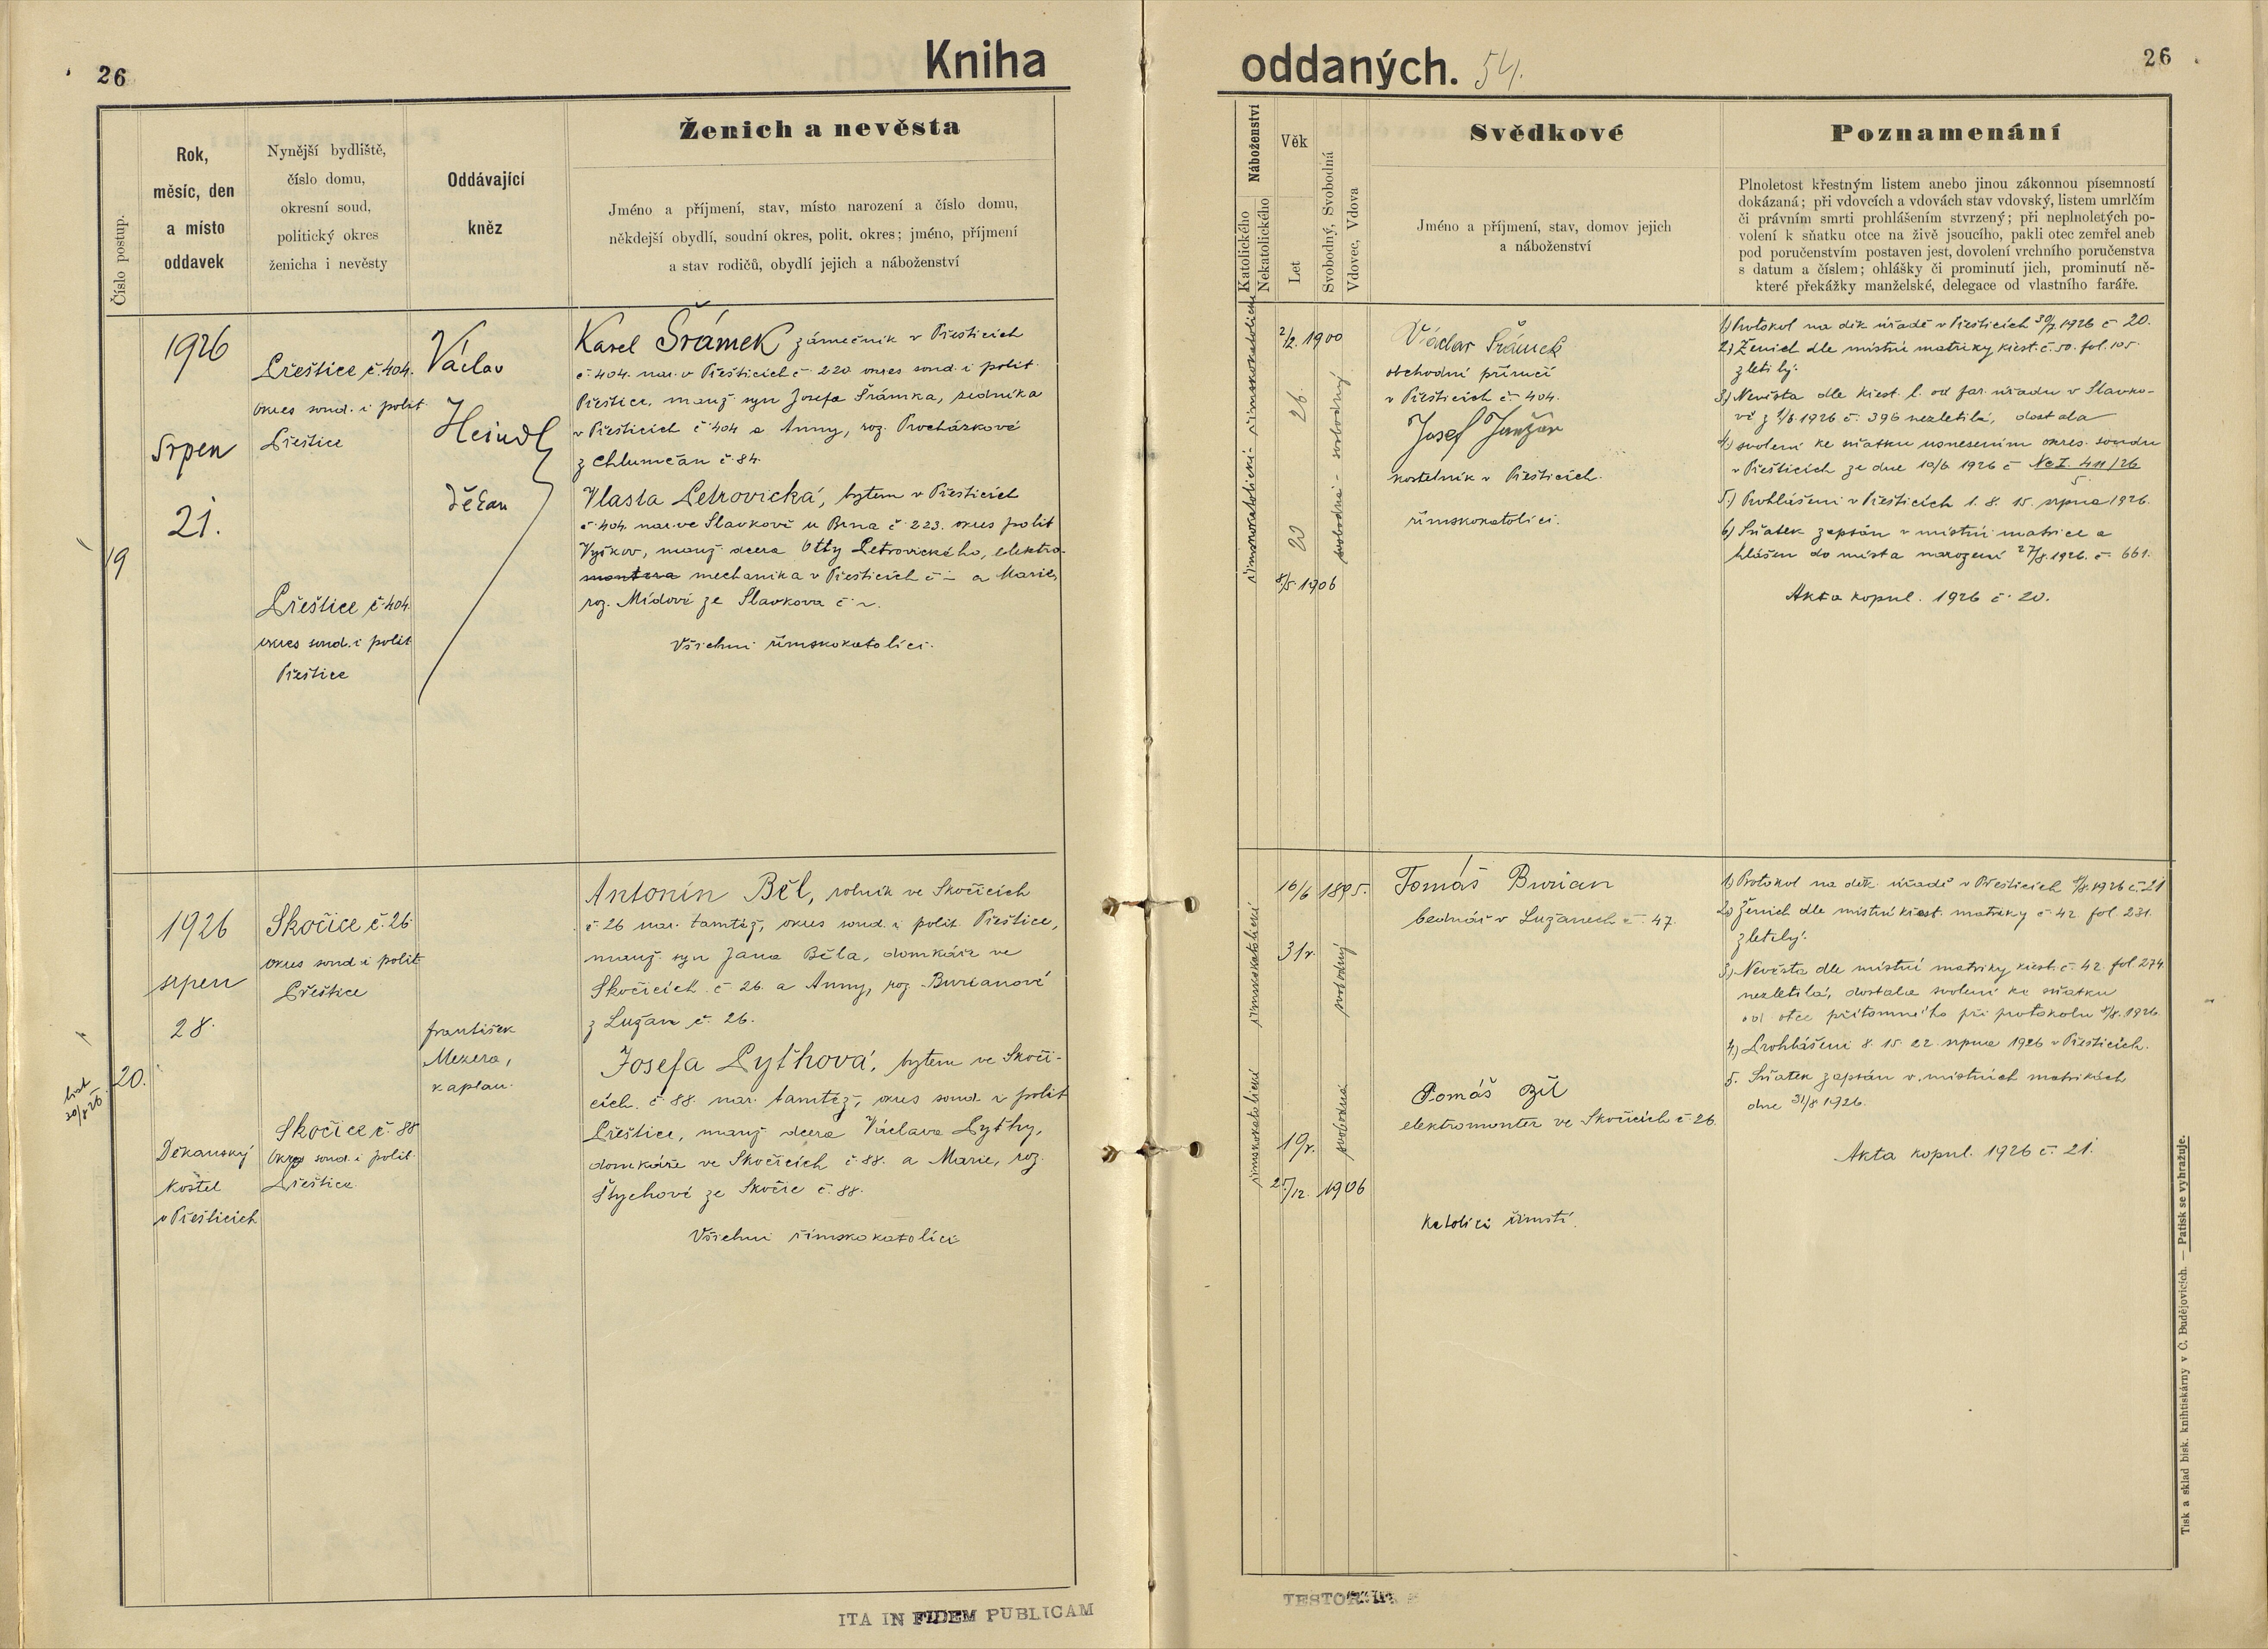 26
Kniha
oddaných. 54.
26
Číslo postup.
Rok,
měsíc, den
a místo
oddavek
Nynější bydliště,
číslo domu,
okresní soud,
politický okres
ženicha i nevěsty
Oddávající
kněz
Ženich a nevěsta
Jméno a příjmení, stav, místo narození a číslo domu,
někdejší obydlí, soudní okres, polit. okres; jméno, příjmení
a stav rodičů, obydlí jejich a náboženství
Náboženství
Katolického
Nekatolického
Věk
Let
Svobodný, Svobodná
Vdovec, Vdova
Svědkové
Jméno a příjmení, stav, domov jejich
a náboženství
Poznamenání
Plnoletost křestným listem anebo jinou zákonnou písemností
dokázaná; při vdovcích a vdovách stav vdovský, listem umrlčím
či právním smrti prohlášením stvrzený; při neplnoletých po-
volení k sňatku otce na živě jsoucího, pakli otec zemřel aneb
pod poručenstvím postaven jest, dovolení vrchního poručenstva
s datum a číslem; ohlášky či prominutí jich, prominutí ně-
které překážky manželské, delegace od vlastního faráře.
19
1926
Srpen
21.
Přeštice č. 404.
okres soud. i polit.
Přeštice
Přeštice č. 404.
okres soud. i polit
Přeštice
Václav
Heindl
děkan
Karel Šrámek zámečník v Přešticích
č. 404. nar. v Přešticích č. 220 okres soud. i polit.
Přeštice, manž. syn Josefa Šrámka, zedníka
v Přešticích č. 404 a Anny, roz. Procházkové
z Chlumčan č. 84.
Vlasta Petrovická, bytem v Přešticích
č. 404. nar. ve Slavkově u Brna č. 223. okres polit
Vyškov, manž. dcera Otty Petrovického, elektro-
montera mechanika v Přešticích č. – a Marie,
roz. Mídové ze Slavkova č. ~.
Všichni římskokatolíci.
římskokatolické - římskokatolické
2/2. 1900
26
20
8/5 1906
svobodná - svobodný
Václav Šrámek
obchodní příručí
v Přešticích č. 404.
Josef
kostelník v Přešticích.
římskokatolíci.
1) Protokol na děk. úřadě v Přešticích 30/7 1926 č. 20.
2) Ženich dle místní matriky křest. č. 50. fol. 105.
zletilý.
3) Nevěsta dle křest. l. od far. úřadu v Slavko-
vě z 1/6 1926 č. 396 nezletilá, dostala
4) svolení ke sňatku usnesením okres. soudu
v Přešticích ze dne 10/6 1926 č. Nc I. 411/26
5
5.) Prohlášeni v Přešticích 1. 8. 15. srpna 1926.
6) Sňatek zapsán v místní matrice a
hlášen do místa narození 27/8. 1926. č. 661.
Akta kopul. 1926 č. 20.
list
30/8 26
20.
1926
srpen
28.
Děkanský
kostel
v Přešticích
Skočice č. 26
okres soud. i polit
Přeštice
Skočice č. 88
Okres soud. i polit.
Přeštice.
František
Mezera,
kaplan.
Antonín Běl, rolník ve Skočicích
č. 26 nar. tamtéž, okres soud. i polit. Přeštice,
manž. syn Jana Běla, domkáře ve
Skočicích č. 26. a Anny, roz. Burianové
z Lužan č. 26.
Josefa Pythová, bytem ve Skoči-
cích. č. 88. nar. tamtéž, okres soud. i polit
Přeštice, manž dcera Václava Pythy,
domkáře ve Skočicích č. 88. a Marie, roz.
Štychové ze Skočic č. 88.
Všichni římskokatolíci
římskokatolické římskokatolické
16/6 1895.
31 r.
19 r.
25/12. 1906
svobodná svobodný
Tomáš Burian
bednář v Lužanech č. 47.
Tomáš Běl
elektromontér ve Skočicích č. 26.
Katolíci římští.
1) Protokol na děk. úřadě v Přešticích 1/8. 1926 č. 21
2) Ženich dle místní křest. matriky č. 42 fol 231.
zletilý.
3) Nevěsta dle místní matriky křest. č. 42. fol. 274.
nezletilá, dostala svolení ke sňatku
od otce přítomného při protokolu 1/8. 1926.
4.) Prohlášeni 8. 15. 22. srpna 1926 v Přešticích.
5. Sňatek zapsán v místních matrikách
dne 31/8 1926.
Akta kopul. 1926 č. 21.
ITA IN FIDEM PUBLICAM
Tisk a sklad bisk. knihtiskárny v Č. Budějovicích. — Patisk se vyhražuje.